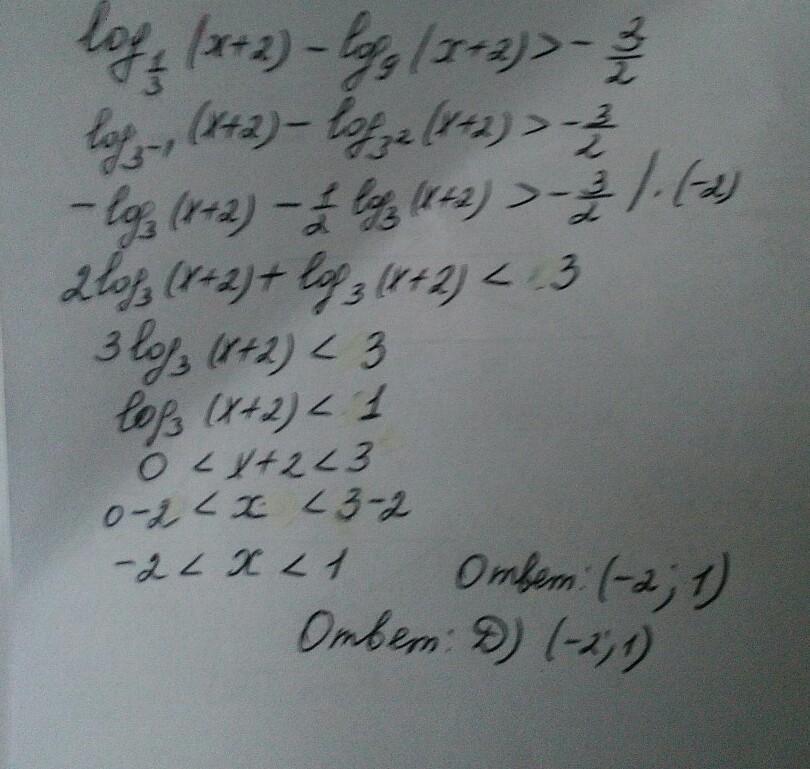 log_{1/3} (x+2) - log_9 (x+2) > - 3/2
log_{3^{-1}} (x+2) - log_{3^2} (x+2) > - 3/2
- log_3 (x+2) - 1/2 log_3 (x+2) > - 3/2 / · (-2)
2 log_3 (x+2) + log_3 (x+2) < 3
3 log_3 (x+2) < 3
log_3 (x+2) < 1
0 < x+2 < 3
0-2 < x < 3-2
-2 < x < 1 Ответ: (-2; 1)
Ответ: D) (-2; 1)